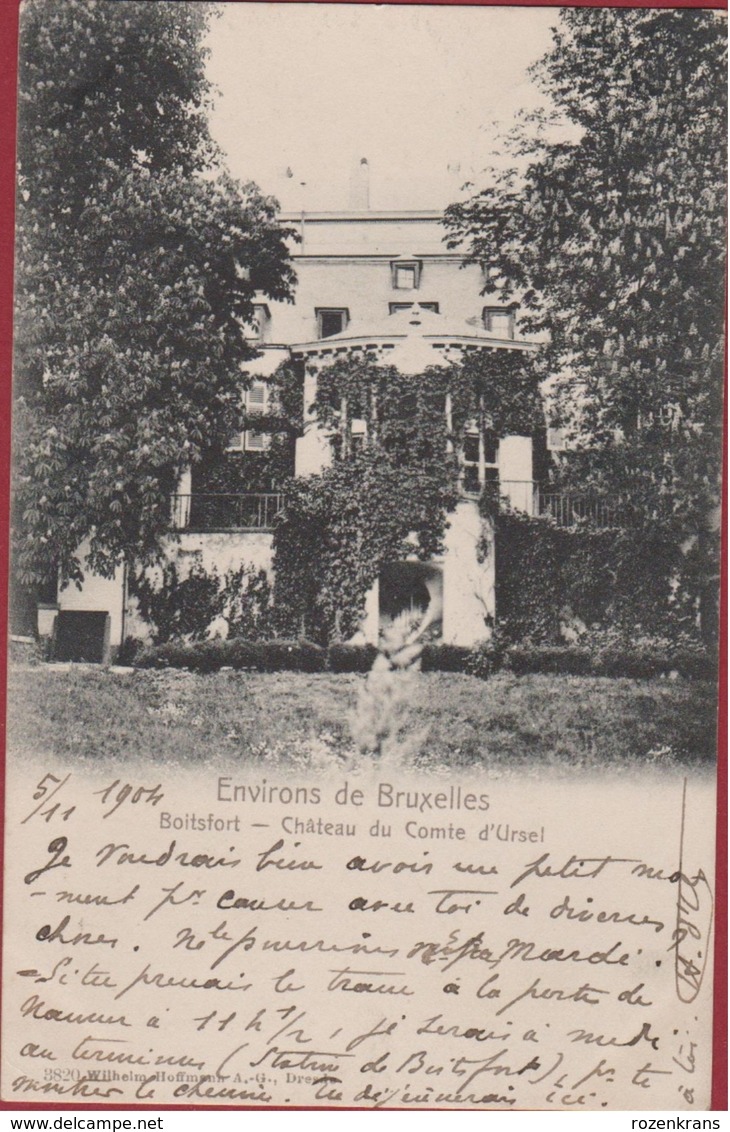 5/11 1904
Environs de Bruxelles
Boitsfort — Château du Comte d'Ursel
Je voudrais bien avoir un petit mo-
-ment pr causer avec toi de diverses
choses. Ne le pourrions Mardi.
Si tu prenais le tram à la porte de
Namur à 11 h 1/2, je serais à midi
au terminus (Statue de Boitsfort), pr te
montrer le chemin. Tu déjeunerais ici.
à toi
3820 Wilhelm Hoffmann A.-G., Dresde
rozenkrans